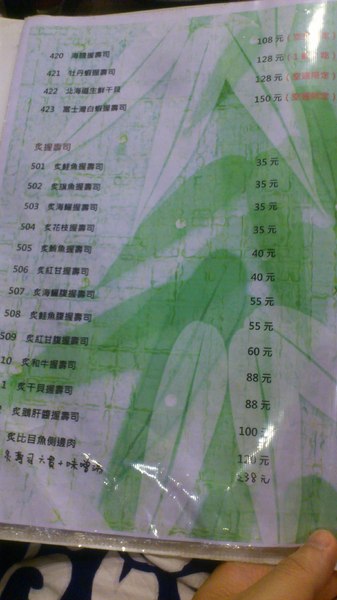 420 海膽握壽司 108元
421 牡丹蝦握壽司 128元
422 北海道生鮮干貝 128元
423 富士灣白蝦握壽司 150元
炙握壽司
501 炙鮭魚握壽司 35元
502 炙旗魚握壽司 35元
503 炙海鱺握壽司 35元
504 炙花枝握壽司 35元
505 炙鮪魚握壽司 40元
506 炙紅甘握壽司 40元
507 炙海鱺腹握壽司 55元
508 炙鮭魚腹握壽司 55元
509 炙紅甘腹握壽司 60元
10 炙和牛握壽司 88元
1 炙干貝握壽司 88元
炙鵝肝醬握壽司 100
炙比目魚側邊肉 元
炙壽司六貫+味噌湯 238元